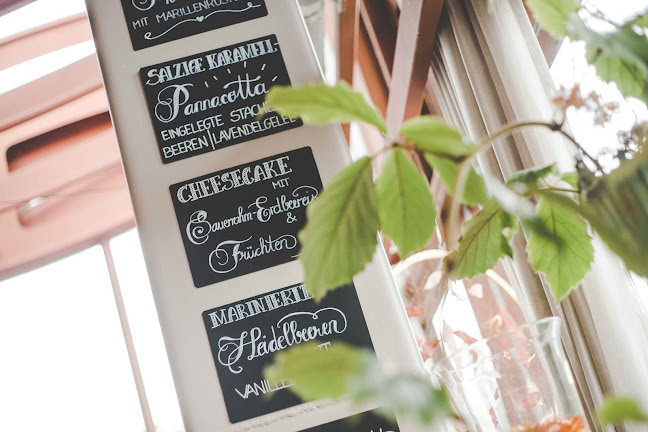 MIT MARILLENRÖS
SALZIGE KARAMELL-
Pannacotta
EINGELEGTE STACHEL
BEEREN | LAVENDELGELEE
CHEESECAKE
MIT
Sauerrahm-Erdbeereis
&
Früchten
MARINIERTE
Heidelbeeren